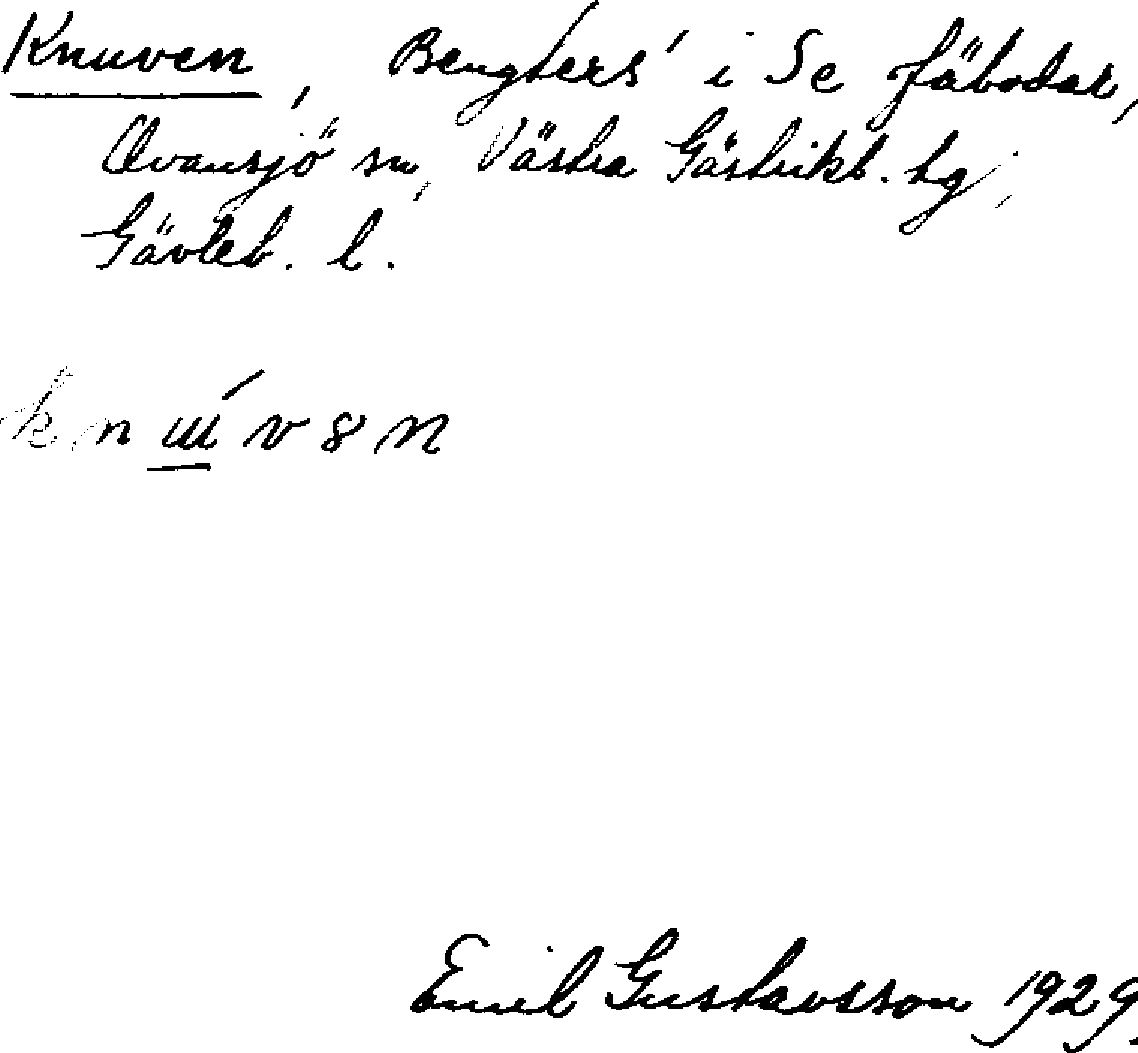 Knuven, Bengters' i Se fäbodar,
Ovansjö sn, Västra Gästrikl. hg,
Gävleb. l.
k n ɯ́ v 8 n
Emil Gustavsson 1929.